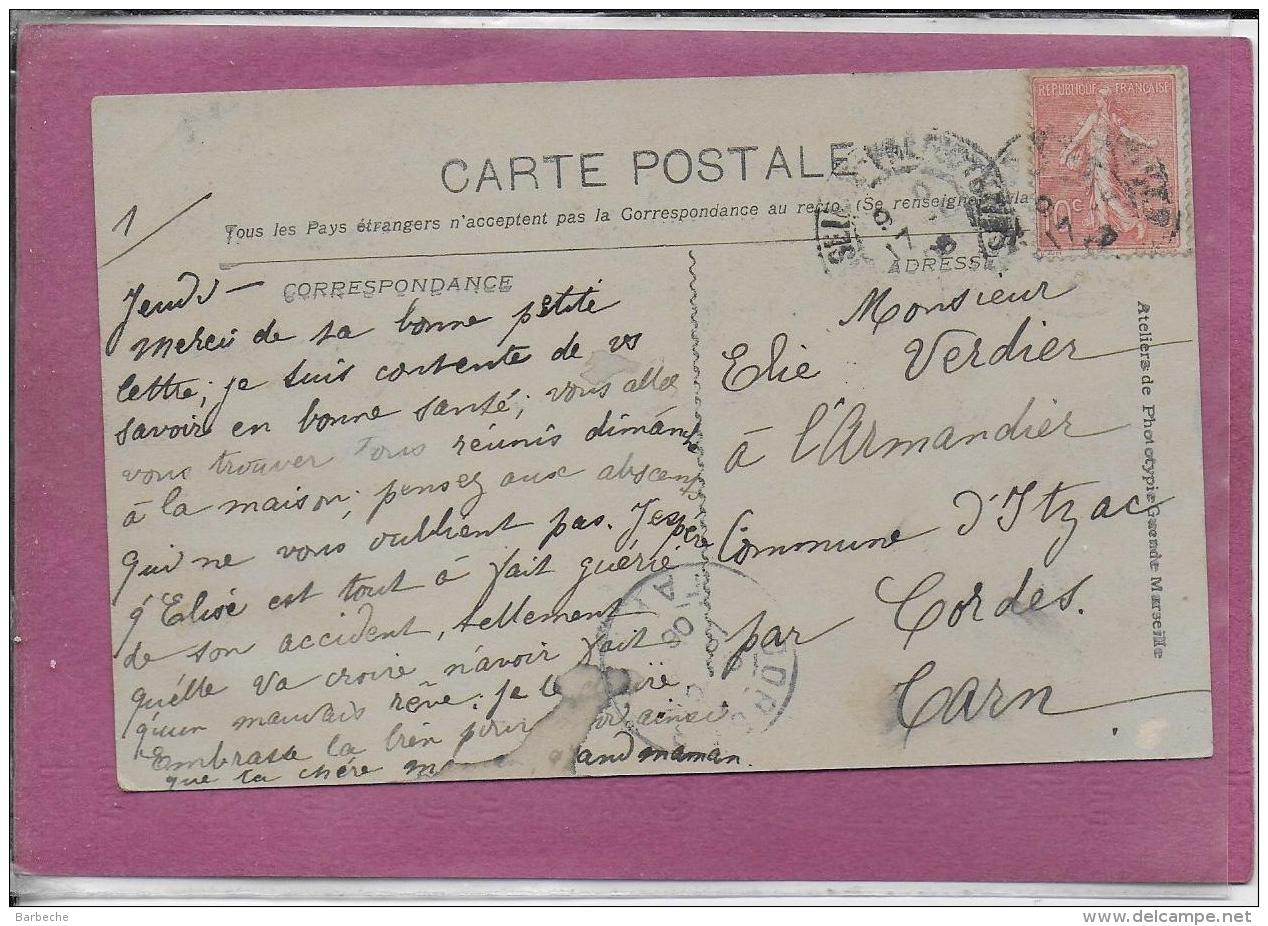 REPUBLIQUE FRANÇAISE
CARTE POSTALE
Tous les Pays étrangers n'acceptent pas la Correspondance au recto (Se renseigner
1
CORRESPONDANCE
Jeudi —
Merci de ta bonne petite
lettre; je suis contente de vs
savoir en bonne santé; vous allez
vous trouver tous réunis dimanche
à la maison; pensez aux absents
qui ne vous oublient pas. J'espère
q' Elise est tout à fait guérie
de son accident, tellement
qu'elle va croire n'avoir fait
qu'un mauvais rêve; je le
Embrasse la bien pour ainsi
que ta chère grand maman.
ADRESSE
Monsieur
Elie Verdier
à l'Armandier
Commune d'Itzac
par Cordes.
Tarn
Ateliers de Phototypie Marseille
Barbeche
delcampe.net